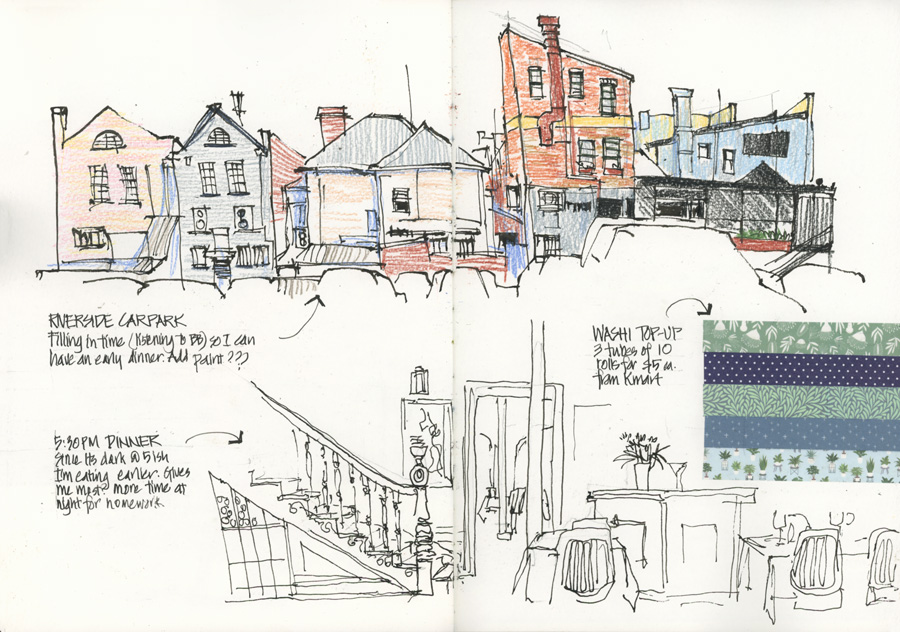 RIVERSIDE CARPARK
Filling in time (listening to BB) so I can
have an early dinner. Add paint???
WASHI TOP-UP
3 tubes of 10
rolls for $5 ea.
from Kmart
5:30PM DINNER
Since its dark @ 5 ish
I'm eating earlier. Gives
me most? more time at
night for homework